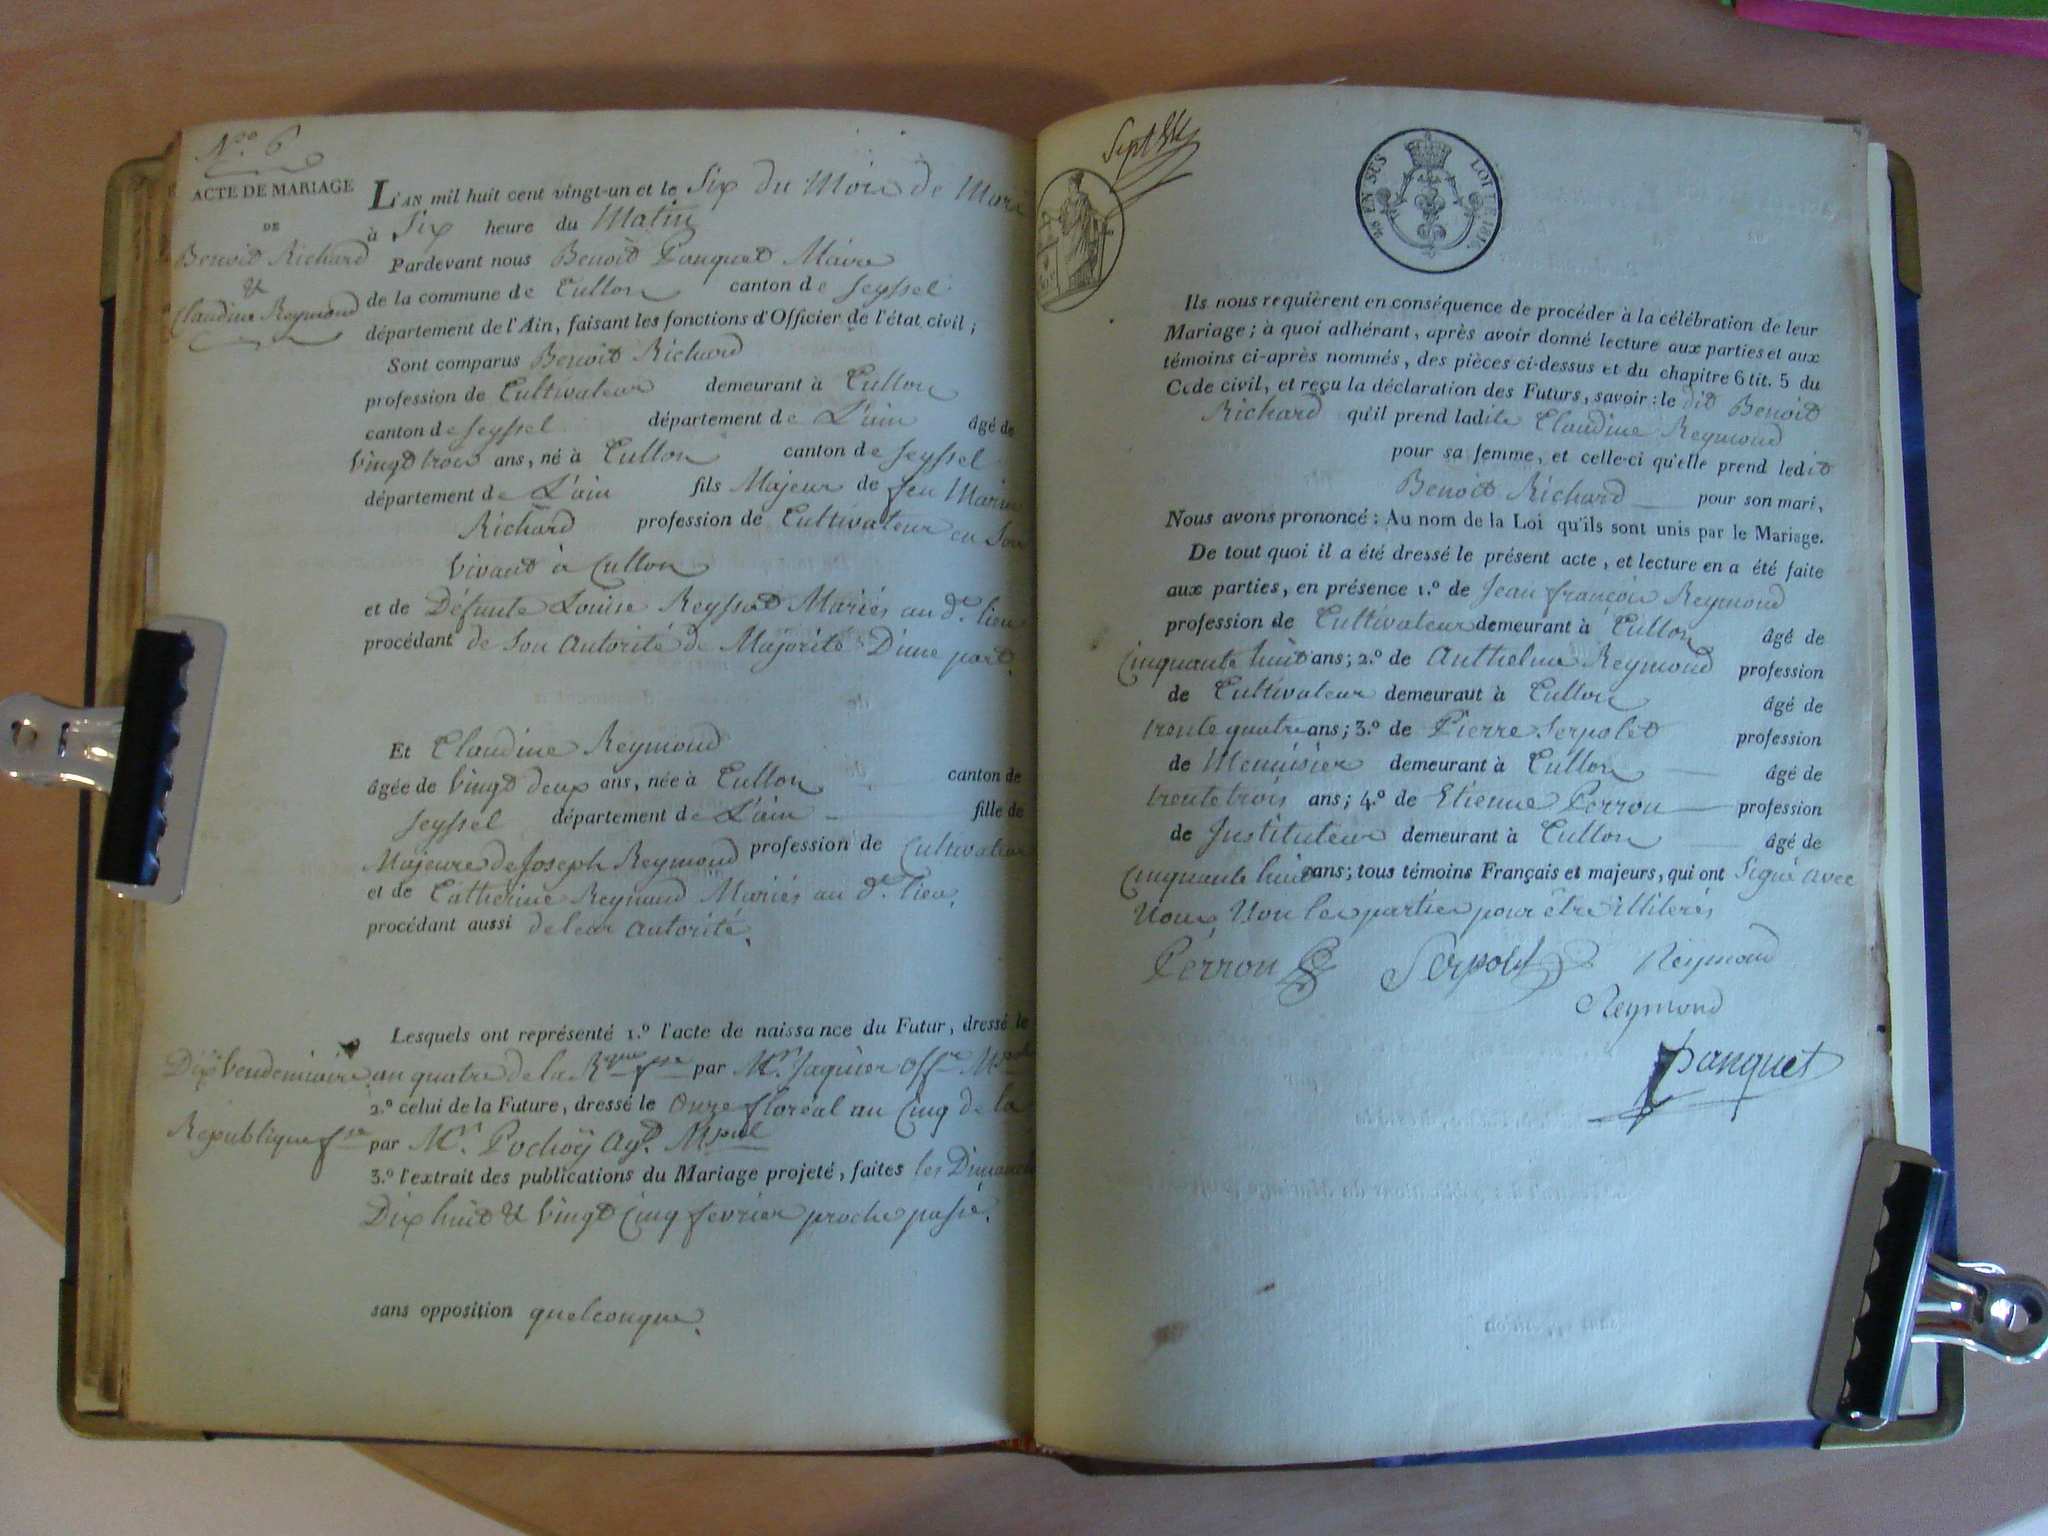 N.ro 6
ACTE DE MARIAGE
DE
Benoit Richard
&
Claudine Reymond
L'AN mil huit cent vingt-un et le Six du Mois de Mars
à Six heure du Matin
Pardevant nous Benoit Panquet Maire
de la commune de Cullon canton de Seyssel
département de l'Ain, faisant les fonctions d'Officier de l'état civil ;
Sont comparus Benoit Richard
profession de Cultivateur demeurant à Cullon
canton de Seyssel département de L'ain âgé de
Vingt trois ans, né à Cullon canton de Seyssel
département de L'ain fils Majeur de feu Marin
Richard profession de Cultivateur en Son
Vivant à Cullon
et de Défunte Louise Reyssat Mariés au d.t lieu
procédant de Son Autorité de Majorité D'une part.
Et Claudine Reymond
âgée de Vingt deux ans, née à Cullon canton de
Seyssel département de L'ain fille de
Majeure de Joseph Reymond profession de Cultivateur
et de Catherine Reynaud Mariés au d.t lieu,
procédant aussi de leur Autorité.
Lesquels ont représenté 1.º l'acte de naissance du Futur, dressé le
Dix Vendemiaire an quatre de la R.que f.se par M.r Jaquier Off.er M.pal
2.º celui de la Future, dressé le Onze floréal an Cinq de la
République f.se par M.r Pochoÿ Ag.t M.pal
3.º l'extrait des publications du Mariage projeté, faites les Dimanches
Dix huit & Vingt Cinq fevrier proche passé.
sans opposition quelconque.
Sept
28 EN SUS LOI DE 1816.
Ils nous requièrent en conséquence de procéder à la célébration de leur
Mariage ; à quoi adhérant, après avoir donné lecture aux parties et aux
témoins ci-après nommés, des pièces ci-dessus et du chapitre 6 tit. 5 du
Code civil, et reçu la déclaration des Futurs, savoir : le dit Benoit
Richard qu'il prend ladite Claudine Reymond
pour sa femme, et celle-ci qu'elle prend ledit
Benoit Richard pour son mari,
Nous avons prononcé : Au nom de la Loi qu'ils sont unis par le Mariage.
De tout quoi il a été dressé le présent acte, et lecture en a été faite
aux parties, en présence 1.º de Jean françois Reymond
profession de Cultivateur demeurant à Cullon âgé de
Cinquante huit ans ; 2.º de Anthelme Reymond profession
de Cultivateur demeuraut à Cullon âgé de
trente quatre ans ; 3.º de Pierre Serpolet profession
de Menuisier demeurant à Cullon âgé de
trente trois ans ; 4.º de Etienne Perron profession
de Instituteur demeurant à Cullon âgé de
Cinquante huit ans ; tous témoins Français et majeurs, qui ont Signé avec
Nous, Non les parties pour être illiterés
Perron Serpolet Reymond
Reymond
Panquet